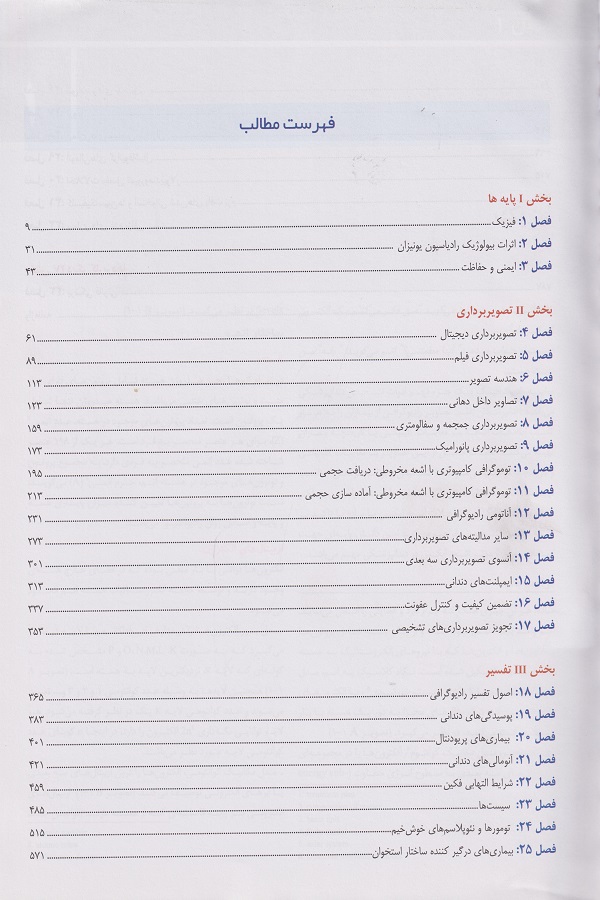 فهرست مطالب
بخش I پایه ها
فصل ۱: فیزیک ۹
فصل ۲: اثرات بیولوژیک رادیاسیون یونیزان ۳۱
فصل ۳: ایمنی و حفاظت ۴۳
بخش II تصویربرداری
فصل ۴: تصویربرداری دیجیتال ۶۱
فصل ۵: تصویربرداری فیلم ۸۹
فصل ۶: هندسه تصویر ۱۱۳
فصل ۷: تصاویر داخل دهانی ۱۲۳
فصل ۸: تصویربرداری جمجمه و سفالومتری ۱۵۹
فصل ۹: تصویربرداری پانورامیک ۱۷۳
فصل ۱۰: توموگرافی کامپیوتری با اشعه مخروطی: دریافت حجمی ۱۹۵
فصل ۱۱: توموگرافی کامپیوتری با اشعه مخروطی: آماده سازی حجمی ۲۱۳
فصل ۱۲: آناتومی رادیوگرافی ۲۳۱
فصل ۱۳: سایر مدالیته‌های تصویربرداری ۲۷۳
فصل ۱۴: آنسوی تصویربرداری سه بعدی ۳۰۱
فصل ۱۵: ایمپلنت‌های دندانی ۳۱۳
فصل ۱۶: تضمین کیفیت و کنترل عفونت ۳۳۷
فصل ۱۷: تجویز تصویربرداری‌های تشخیصی ۳۵۳
بخش III تفسیر
فصل ۱۸: اصول تفسیر رادیوگرافی ۳۶۵
فصل ۱۹: پوسیدگی‌های دندانی ۳۸۳
فصل ۲۰: بیماری‌های پریودنتال ۴۰۱
فصل ۲۱: آنومالی‌های دندانی ۴۲۱
فصل ۲۲: شرایط التهابی فکین ۴۵۹
فصل ۲۳: سیست‌ها ۴۸۵
فصل ۲۴: تومورها و نئوپلاسم‌های خوش‌خیم ۵۱۵
فصل ۲۵: بیماری‌های درگیر کننده ساختار استخوان ۵۷۱